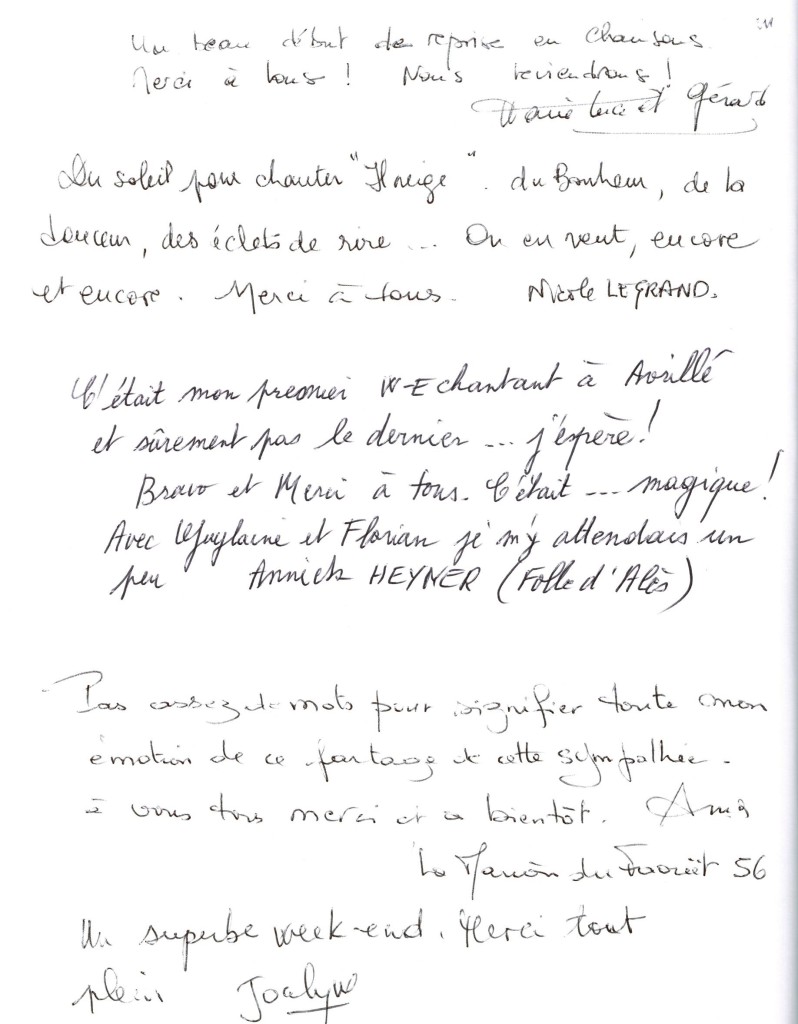 Un beau début de reprise en chansons.
Merci à tous ! Nous reviendrons !
Marie Luce et Gérard
Du soleil pour chanter "Il neige". du Bonheur, de la
douceur, des éclats de rire ... On en veut, encore
et encore. Merci à tous. Nicole LEGRAND.
C'était mon premier W-E chantant à Avrillé
et sûrement pas le dernier ... j'espère !
Bravo et Merci à tous. C'était ... magique !
Avec Guylaine et Florian je m'y attendais un
peu Annick HEYNER (Folle d'Alès)
Pas assez de mots pour signifier toute mon
émotion de ce partage et cette sympathie.
à vous tous merci et à bientôt.
du 56
Un superbe week-end. Merci tout
plein Jocelyne